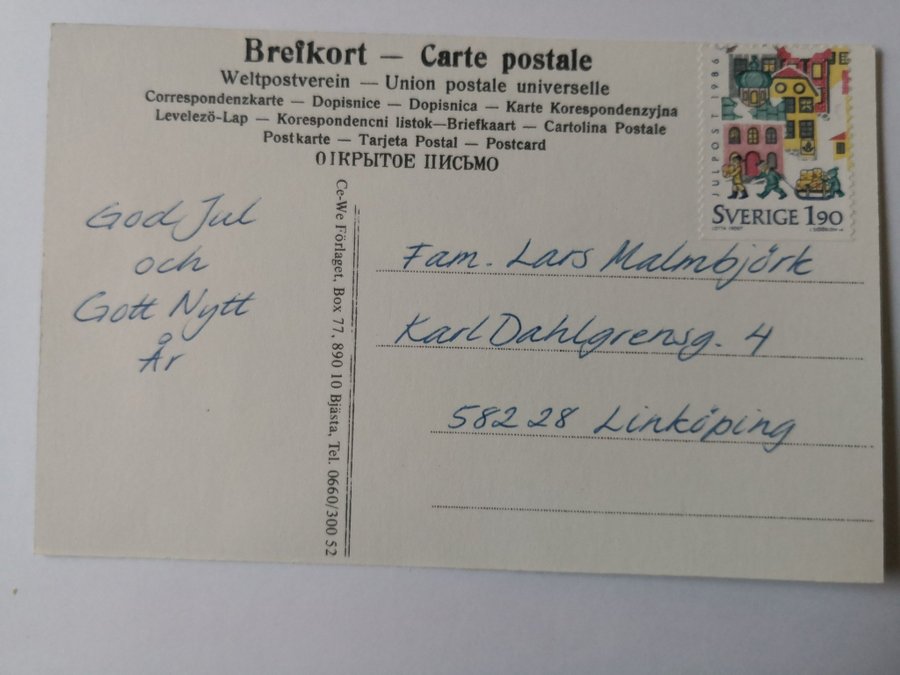 Brefkort — Carte postale
Weltpostverein — Union postale universelle
Correspondenzkarte — Dopisnice — Dopisnica — Karte Korespondenzyjna
Levelezö-Lap — Korespondencni listok—Briefkaart — Cartolina Postale
Postkarte — Tarjeta Postal — Postcard
ОТКРЫТОЕ ПИСЬМО
JULPOST 1986
SVERIGE 1.90
God Jul
och
Gott Nytt
År
Ce-We Förlaget, Box 77, 890 10 Bjästa, Tel. 0660/300 52
Fam. Lars Malmbjörk
Karl Dahlgrensg. 4
582 28 Linköping